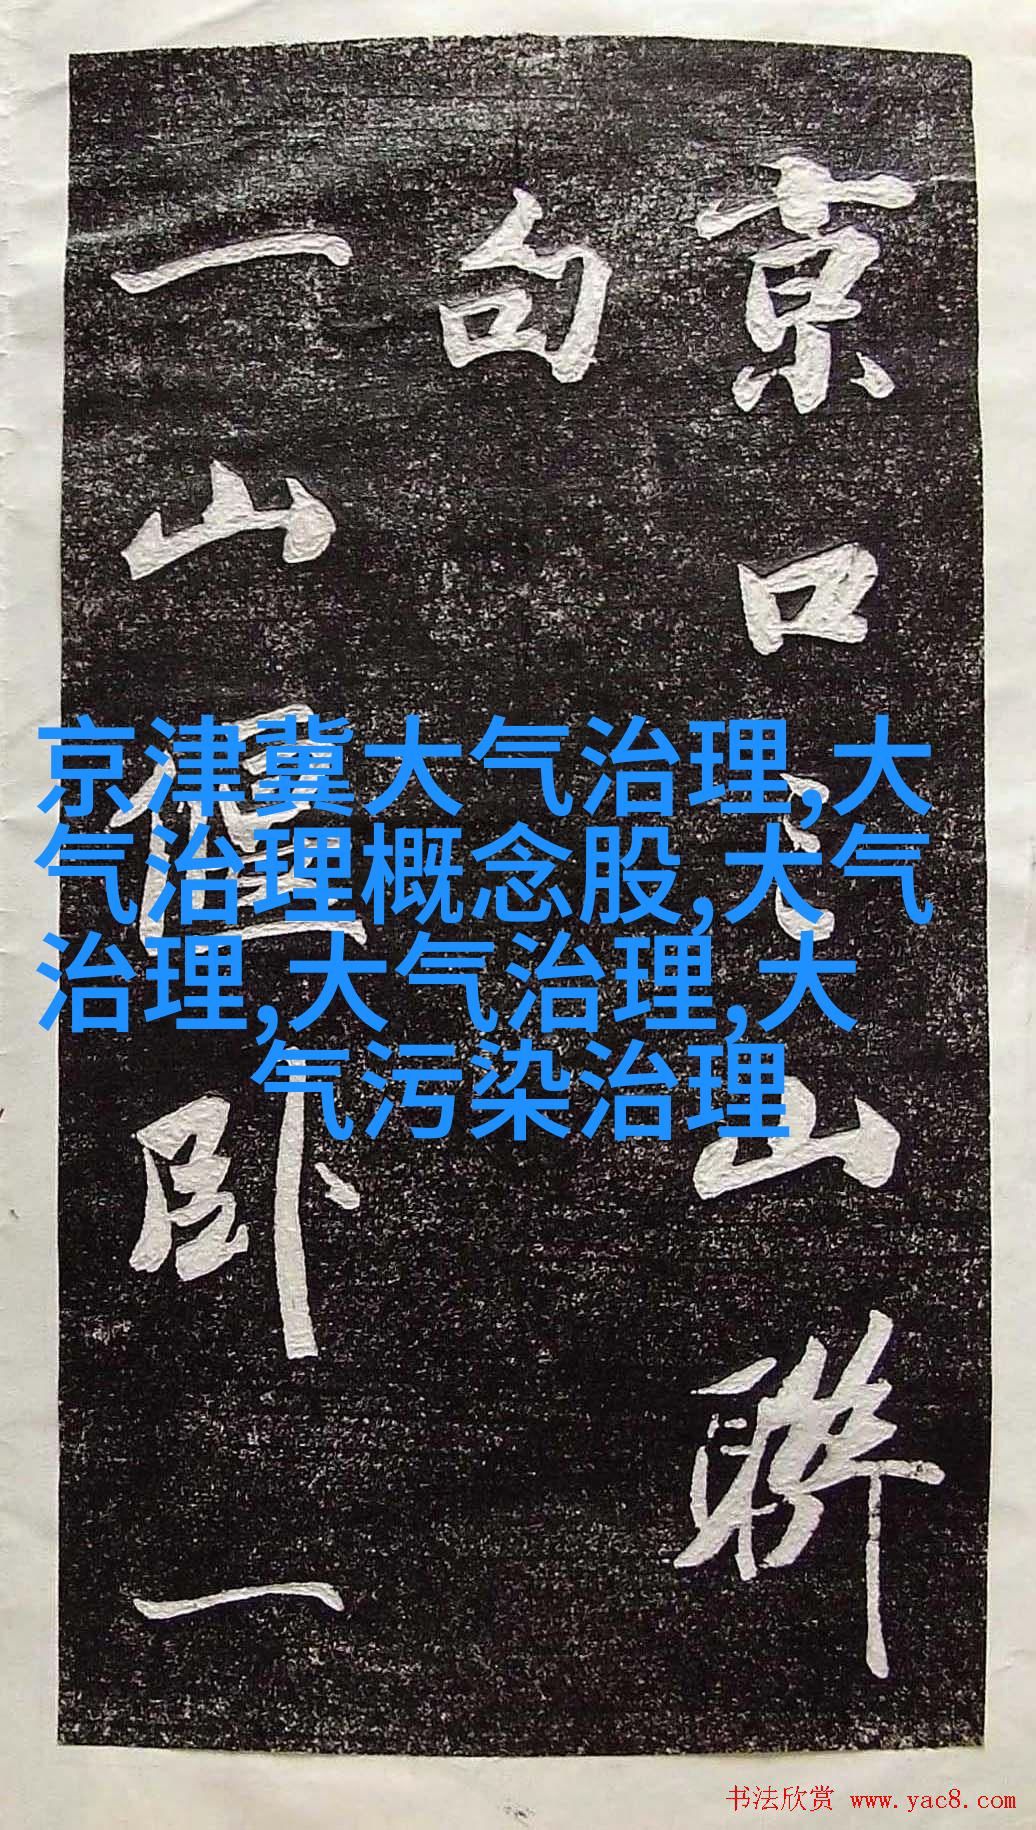 京口山聯
句
一山僵卧一
京津冀大气治理,大
气治理概念股,大气
治理,大气治理,大
气污染治理
书法欣赏 www.yac8.com